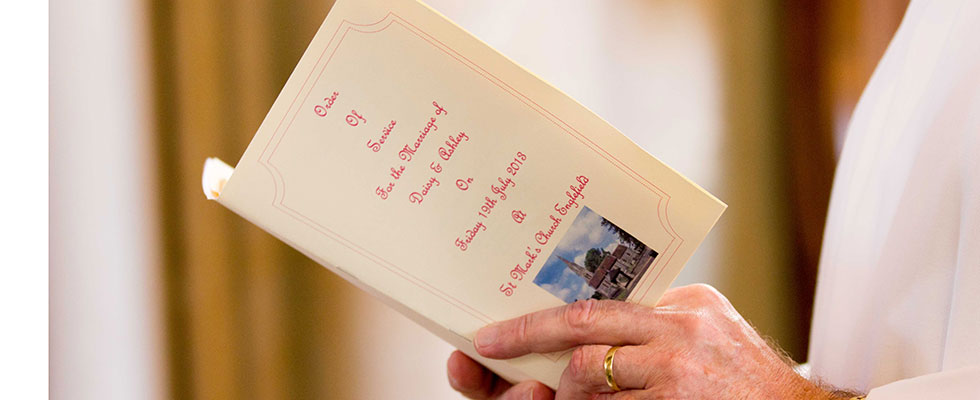 Order
Of
Service
For the Marriage of
Daisy & Ashley
On
Friday 19th July 2013
At
St Mark's Church Englefield